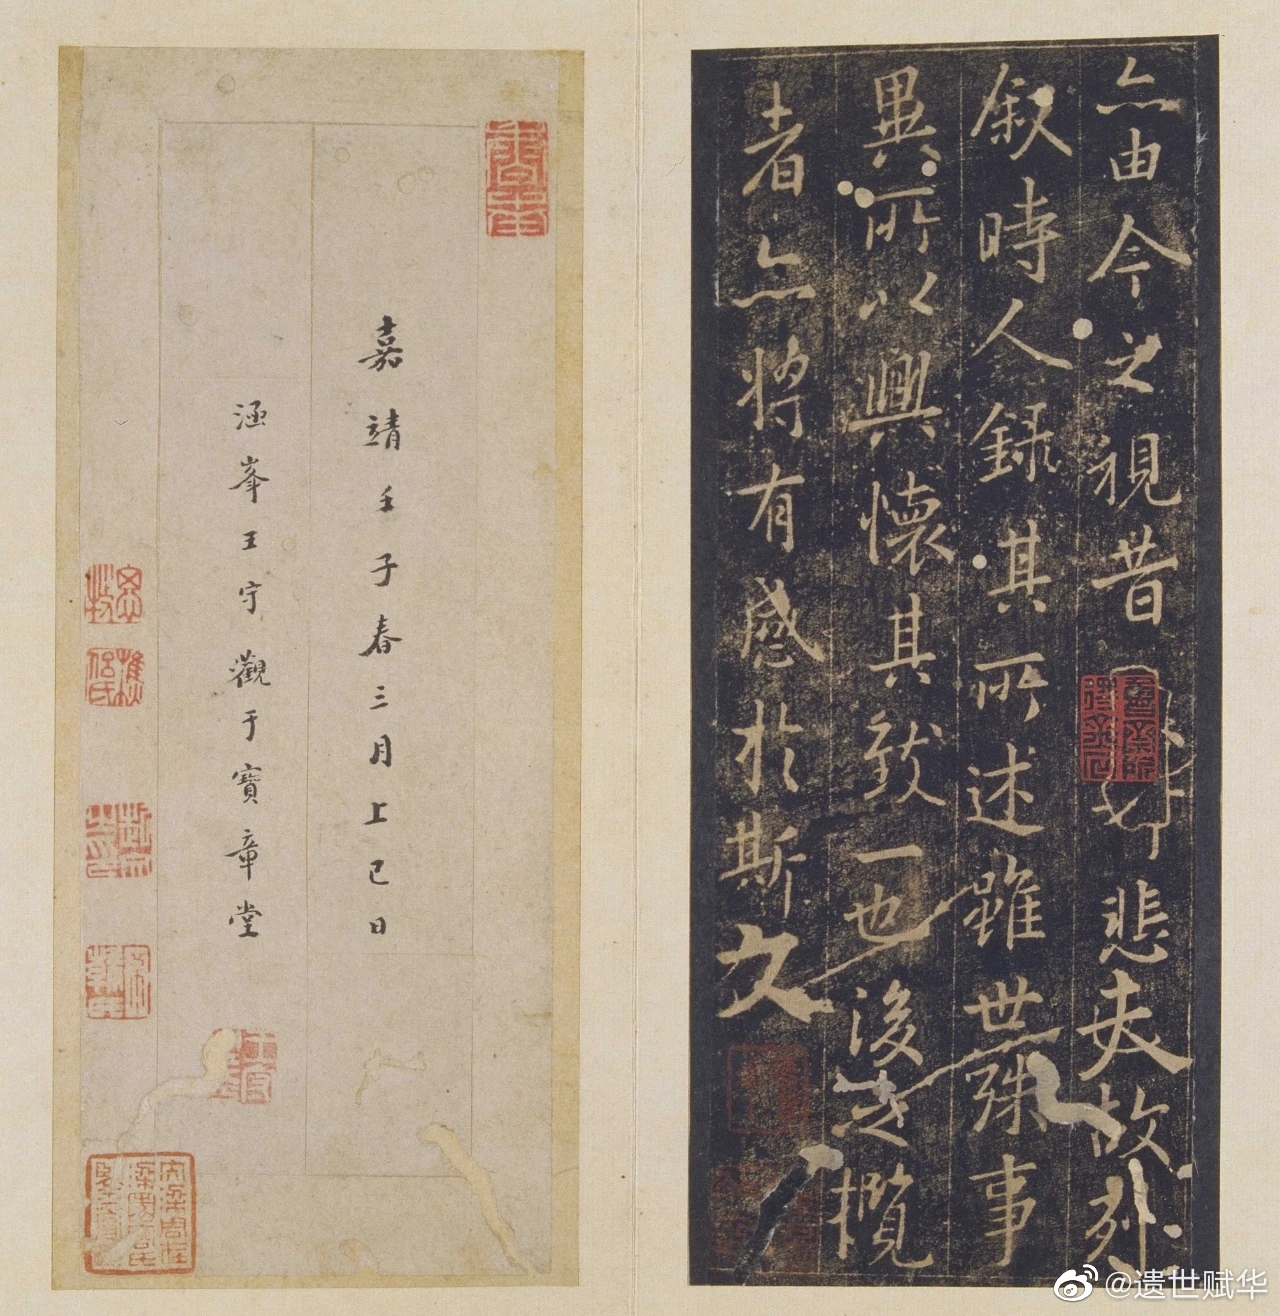 亦由今之視昔悲夫故列
叙時人録其所述雖世殊事
異所以興懷其致一也後之攬
者亦將有感於斯文
嘉靖壬子春三月上巳日
涵峯王守觀于寶章堂
@遗世赋华